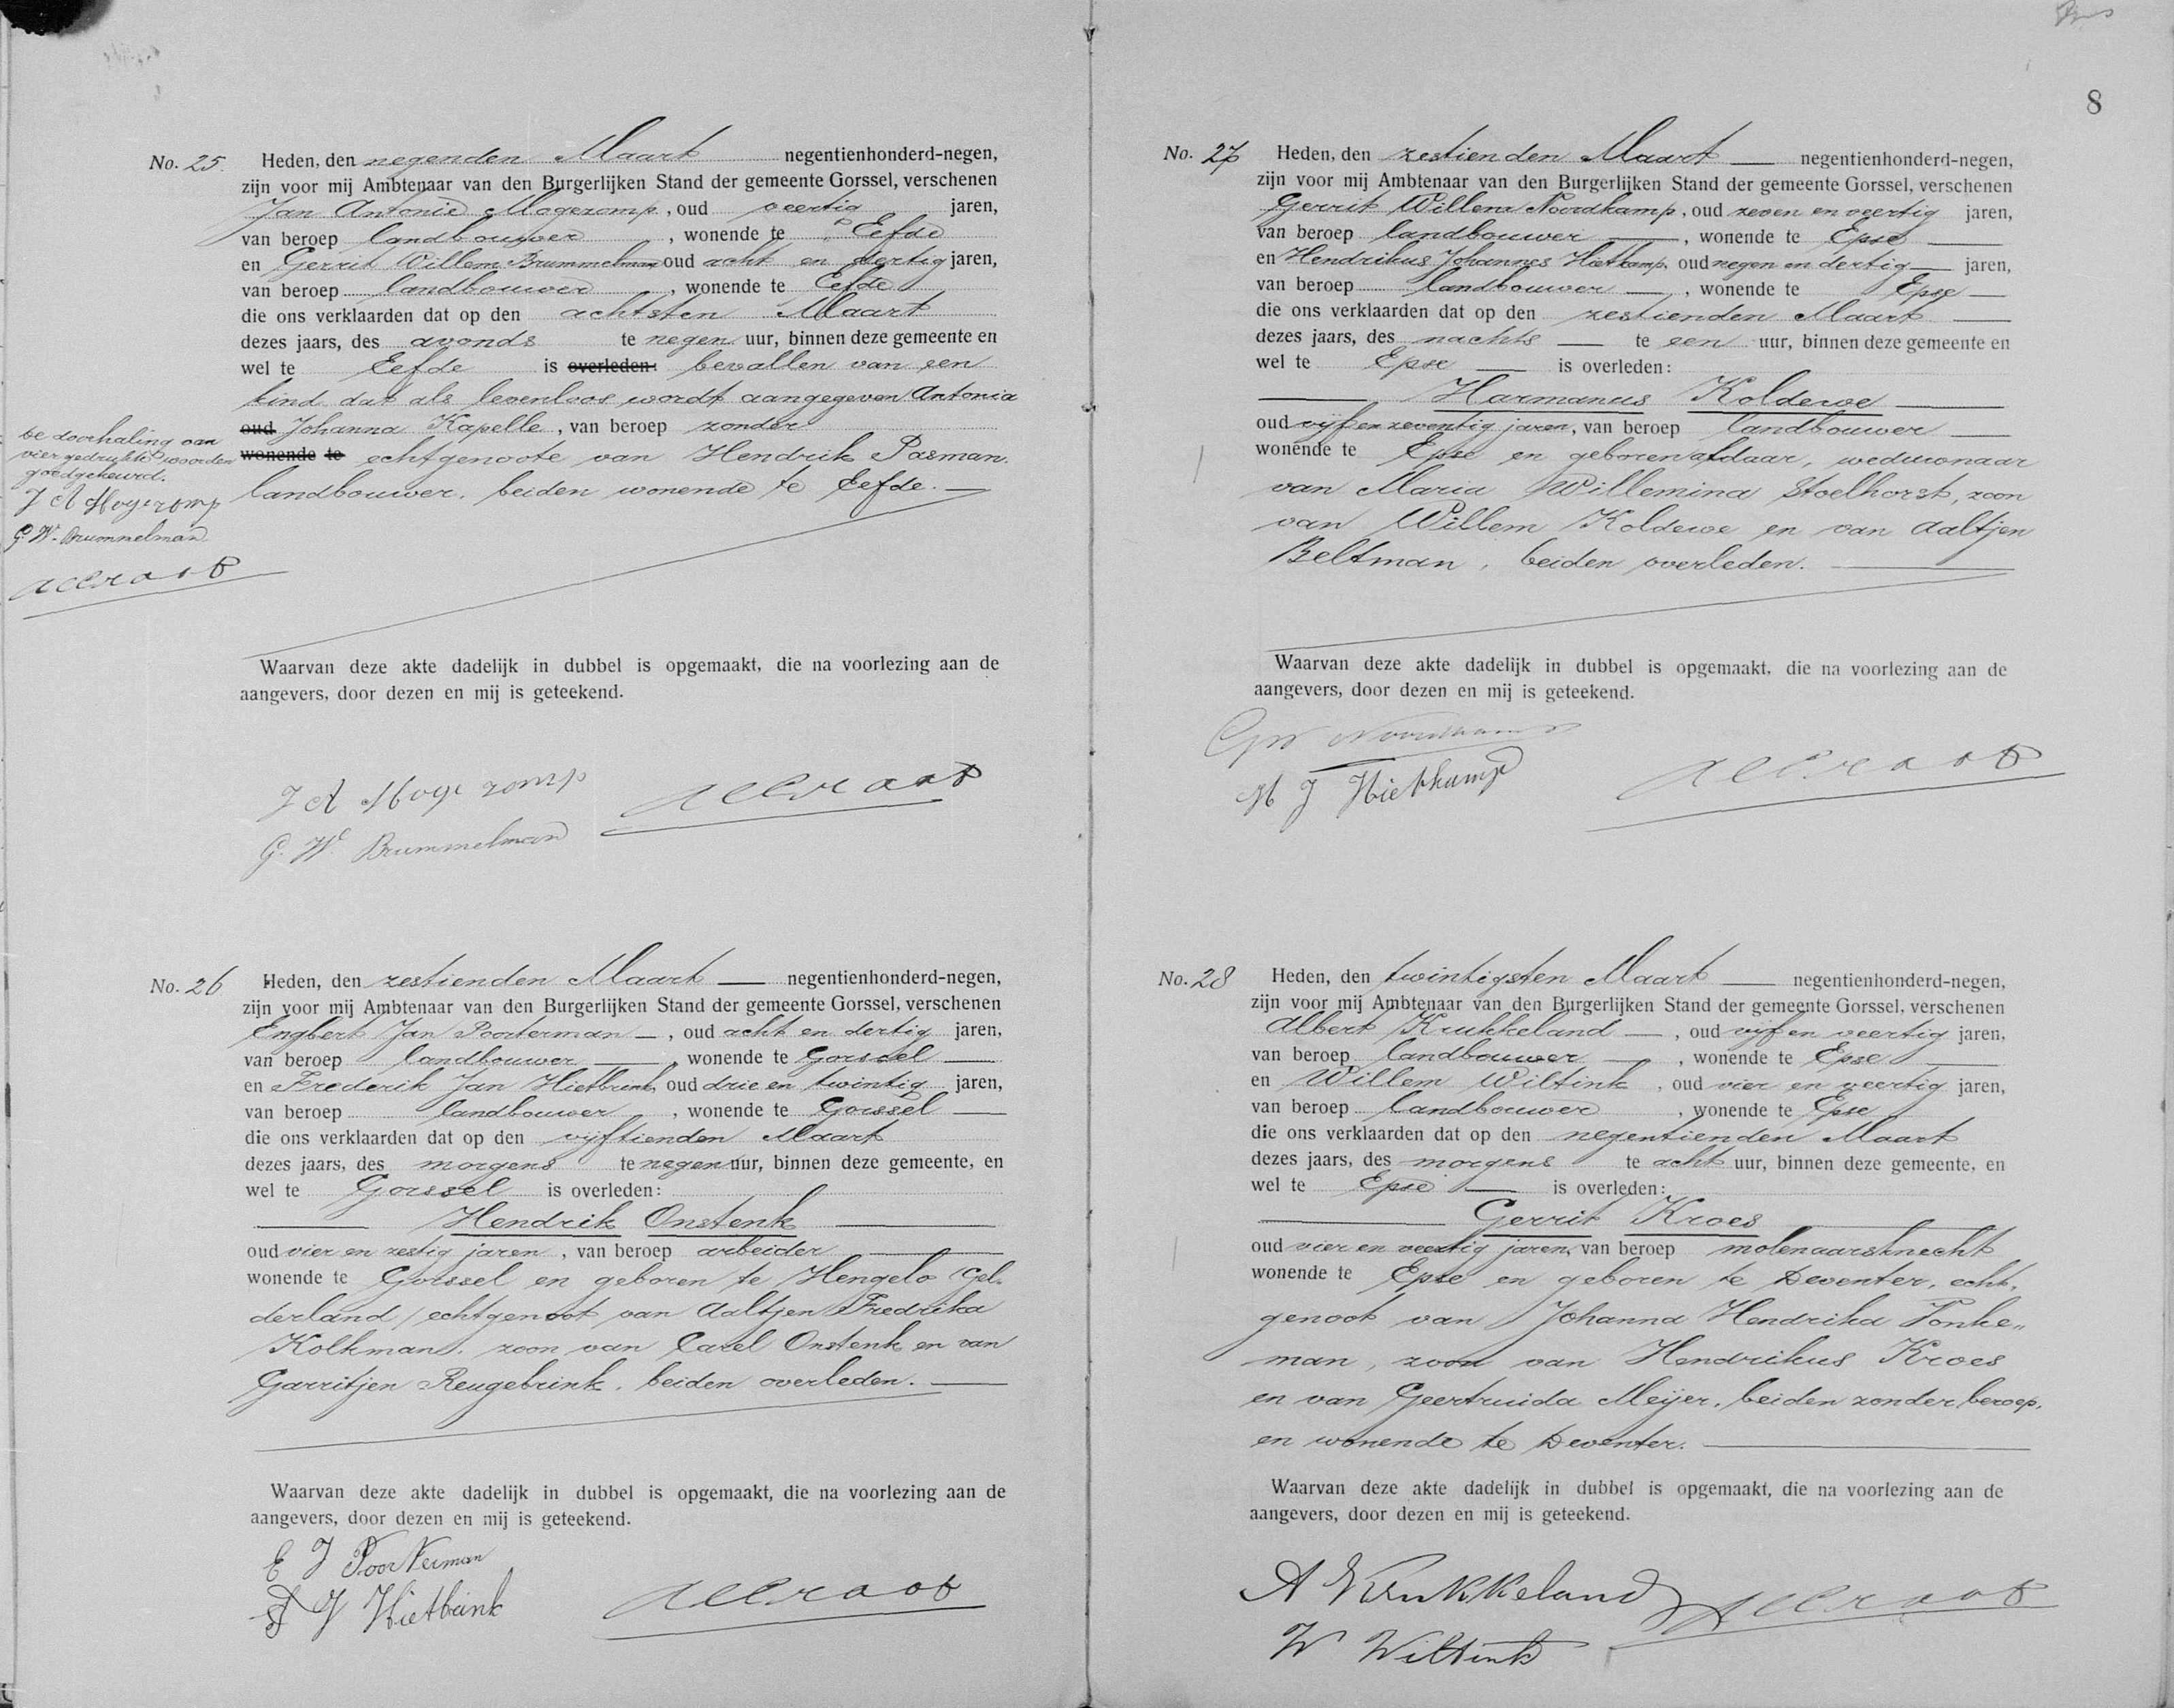 8
No. 25. Heden, den negenden Maart negentienhonderd-negen,
zijn voor mij Ambtenaar van den Burgerlijken Stand der gemeente Gorssel, verschenen
Jan Antonie Mogezomp, oud veertig jaren,
van beroep landbouwer, wonende te Eefde
en Gerrit Willem Brummelman oud acht en dertig jaren,
van beroep landbouwer, wonende te Eefde
die ons verklaarden dat op den achtsten Maart
dezes jaars, des avonds te negen uur, binnen deze gemeente en
wel te Eefde is overleden: bevallen van een
kind dat als levenloos wordt aangegeven Antonia
oud Johanna Kapelle, van beroep zonder
wonende te echtgenoote van Hendrik Pasman.
landbouwer, beiden wonende te Eefde.
de doorhaling van
vier gedrukte woorden
goedgekeurd.
J A Mogezomp
G. W. Brummelman
Waarvan deze akte dadelijk in dubbel is opgemaakt, die na voorlezing aan de
aangevers, door dezen en mij is geteekend.
J A Mogezomp
G. W. Brummelman
No. 26 Heden, den zestienden Maart — negentienhonderd-negen,
zijn voor mij Ambtenaar van den Burgerlijken Stand der gemeente Gorssel, verschenen
Engbert Jan Poorterman —, oud acht en dertig jaren,
van beroep landbouwer —, wonende te Gorssel —
en Frederik Jan Hietbrink, oud drie en twintig jaren,
van beroep landbouwer, wonende te Gorssel —
die ons verklaarden dat op den vijftienden Maart
dezes jaars, des morgens te negen uur, binnen deze gemeente, en
wel te Gorssel is overleden:
— Hendrik Onstenk —
oud vier en zestig jaren, van beroep arbeider —
wonende te Gorssel en geboren te Hengelo (Gel-
derland) echtgenoot van Aaltjen Fredrika
Kolkman, zoon van Carel Onstenk en van
Garritjen Reugebrink, beiden overleden. —
Waarvan deze akte dadelijk in dubbel is opgemaakt, die na voorlezing aan de
aangevers, door dezen en mij is geteekend.
E J Poorterman
F J Hietbrink
No. 27 Heden, den zestienden Maart — negentienhonderd-negen,
zijn voor mij Ambtenaar van den Burgerlijken Stand der gemeente Gorssel, verschenen
Gerrit Willem Noordkamp, oud zeven en veertig jaren,
van beroep landbouwer —, wonende te Epse —
en Hendrikus Johannes Hietkamp, oud negen en dertig — jaren,
van beroep landbouwer —, wonende te Epse —
die ons verklaarden dat op den zestienden Maart —
dezes jaars, des nachts — te een uur, binnen deze gemeente en
wel te Epse — is overleden:
— Harmanus Koldewe —
oud vijf en zeventig jaren, van beroep landbouwer —
wonende te Epse en geboren aldaar, weduwnaar
van Maria Willemina Stoelhorst, zoon
van Willem Koldewe en van Aaltjen
Beltman, beiden overleden. —
Waarvan deze akte dadelijk in dubbel is opgemaakt, die na voorlezing aan de
aangevers, door dezen en mij is geteekend.
GW Noordkamp
H J Hietkamp
No. 28 Heden, den twintigsten Maart — negentienhonderd-negen,
zijn voor mij Ambtenaar van den Burgerlijken Stand der gemeente Gorssel, verschenen
Albert Krukkeland —, oud vijf en veertig jaren,
van beroep landbouwer —, wonende te Epse —
en Willem Wiltink, oud vier en veertig jaren,
van beroep landbouwer, wonende te Epse
die ons verklaarden dat op den negentienden Maart
dezes jaars, des morgens te acht uur, binnen deze gemeente, en
wel te Epse — is overleden:
— Gerrit Kroes —
oud vier en veertig jaren, van beroep molenaarsknecht
wonende te Epse en geboren te Deventer, echt-
genoot van Johanna Hendrika Tonke„
man, zoon van Hendrikus Kroes
en van Geertruida Meijer, beiden zonder beroep,
en wonende te Deventer. —
Waarvan deze akte dadelijk in dubbel is opgemaakt, die na voorlezing aan de
aangevers, door dezen en mij is geteekend.
A Krukkeland
W Wiltink